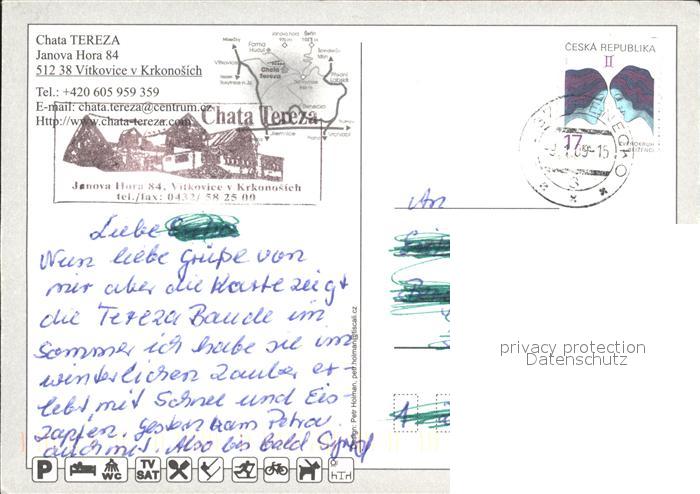 Chata TEREZA
Janova Hora 84
512 38 Vítkovice v Krkonoších
Tel.: +420 605 959 359
E-mail: chata.tereza@centrum.cz
Http://www.chata-tereza.com
Chata Tereza
Janova Hora 84, Vítkovice v Krkonoších
tel./fax: 0432/ 58 25 00
Janova hora
Farma
Hucul
Vítkovice
Chata
Tereza
Benecko
Jilemnice
Vrchlabí
ČESKÁ REPUBLIKA
II
17
BENECKO
An
Liebe
Nun liebe Grüße von
mir aber die Karte zeigt
die Tereza Baude im
Sommer ich habe sie im
winterlichen Zauber er-
lebt mit Schnee und Eis-
Zapfen. gestern kam Petra
auch mit. Also bis bald
Design: Petr Holman, petr.holman@tiscali.cz
privacy protection
Datenschutz
P
WC
TV
SAT